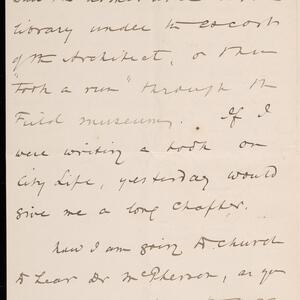 library under the escort
of the Architect, or then
"took a run" through the
Field museum. If I
were writing a book on
City Life, yesterday would
give me a long chapter.
Now I am going to church
to hear Dr McPherson, as you